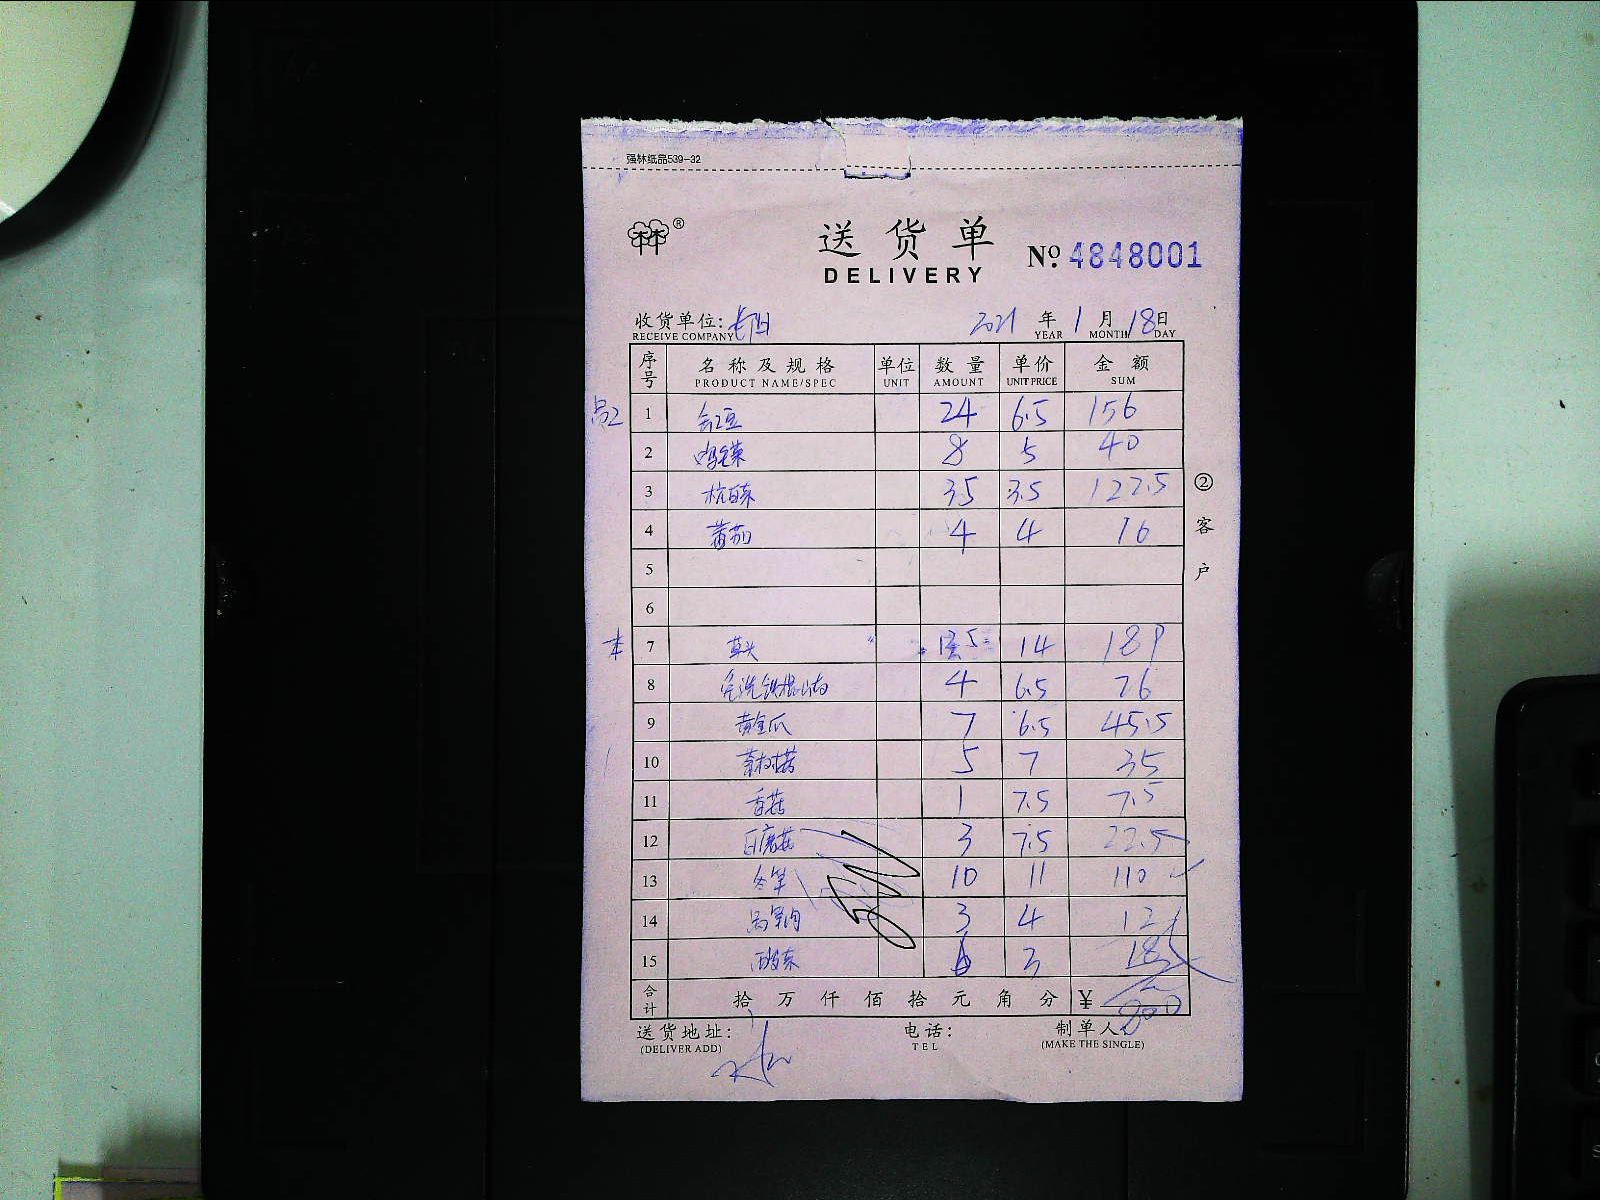 强林纸品539-32
林林®
送货单
DELIVERY
Nº. 4848001
收货单位: 长阳 2021 年 1 月 18 日
RECEIVE COMPANY YEAR MONTH DAY
序号 名称及规格 单位 数量 单价 金额
PRODUCT NAME/SPEC UNIT AMOUNT UNIT PRICE SUM
1 缸豆 24 6.5 156
2 鸡毛菜 8 5 40
3 杭白菜 35 3.5 122.5
4 蕃茄 4 4 16
5
6
7 草头 14 189
8 免洗铁棍山药 4 6.5 26
9 黄金瓜 7 6.5 45.5
10 茶树菇 5 7 35
11 香菇 1 7.5 7.5
12 白蘑菇 3 7.5 22.5
13 冬笋 10 11 110
14 3 4 12
15 6 3 18
合计 拾 万 仟 佰 拾 元 角 分 ¥
送货地址: 电话: 制单人:
(DELIVER ADD) TEL (MAKE THE SINGLE)
② 客户